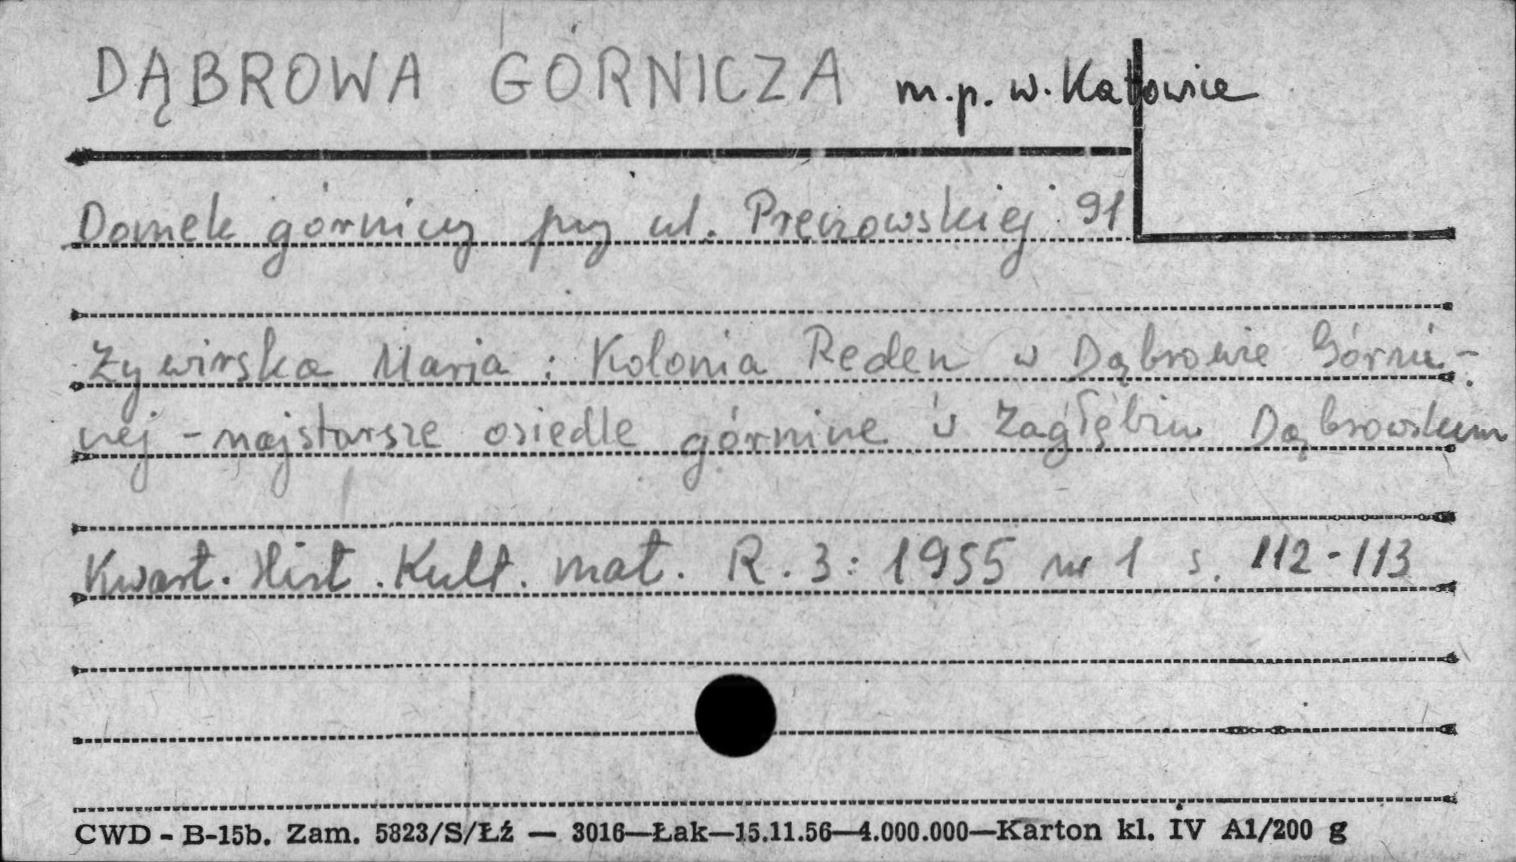 DĄBROWA GÓRNICZA m.p. w. Katowice
Domek górniczy przy ul. Pręczowskiej 91
Żywirska Maria : Kolonia Reden w Dąbrowie Górni-
czej - najstarsze osiedle górnicze w Zagłębiu Dąbrowskim
Kwart. Hist. Kult. mat. R. 3: 1955 nr 1 s. 112-113
CWD - B-15b. Zam. 5823/S/Łź — 3016—Łak—15.11.56—4.000.000—Karton kl. IV A1/200 g